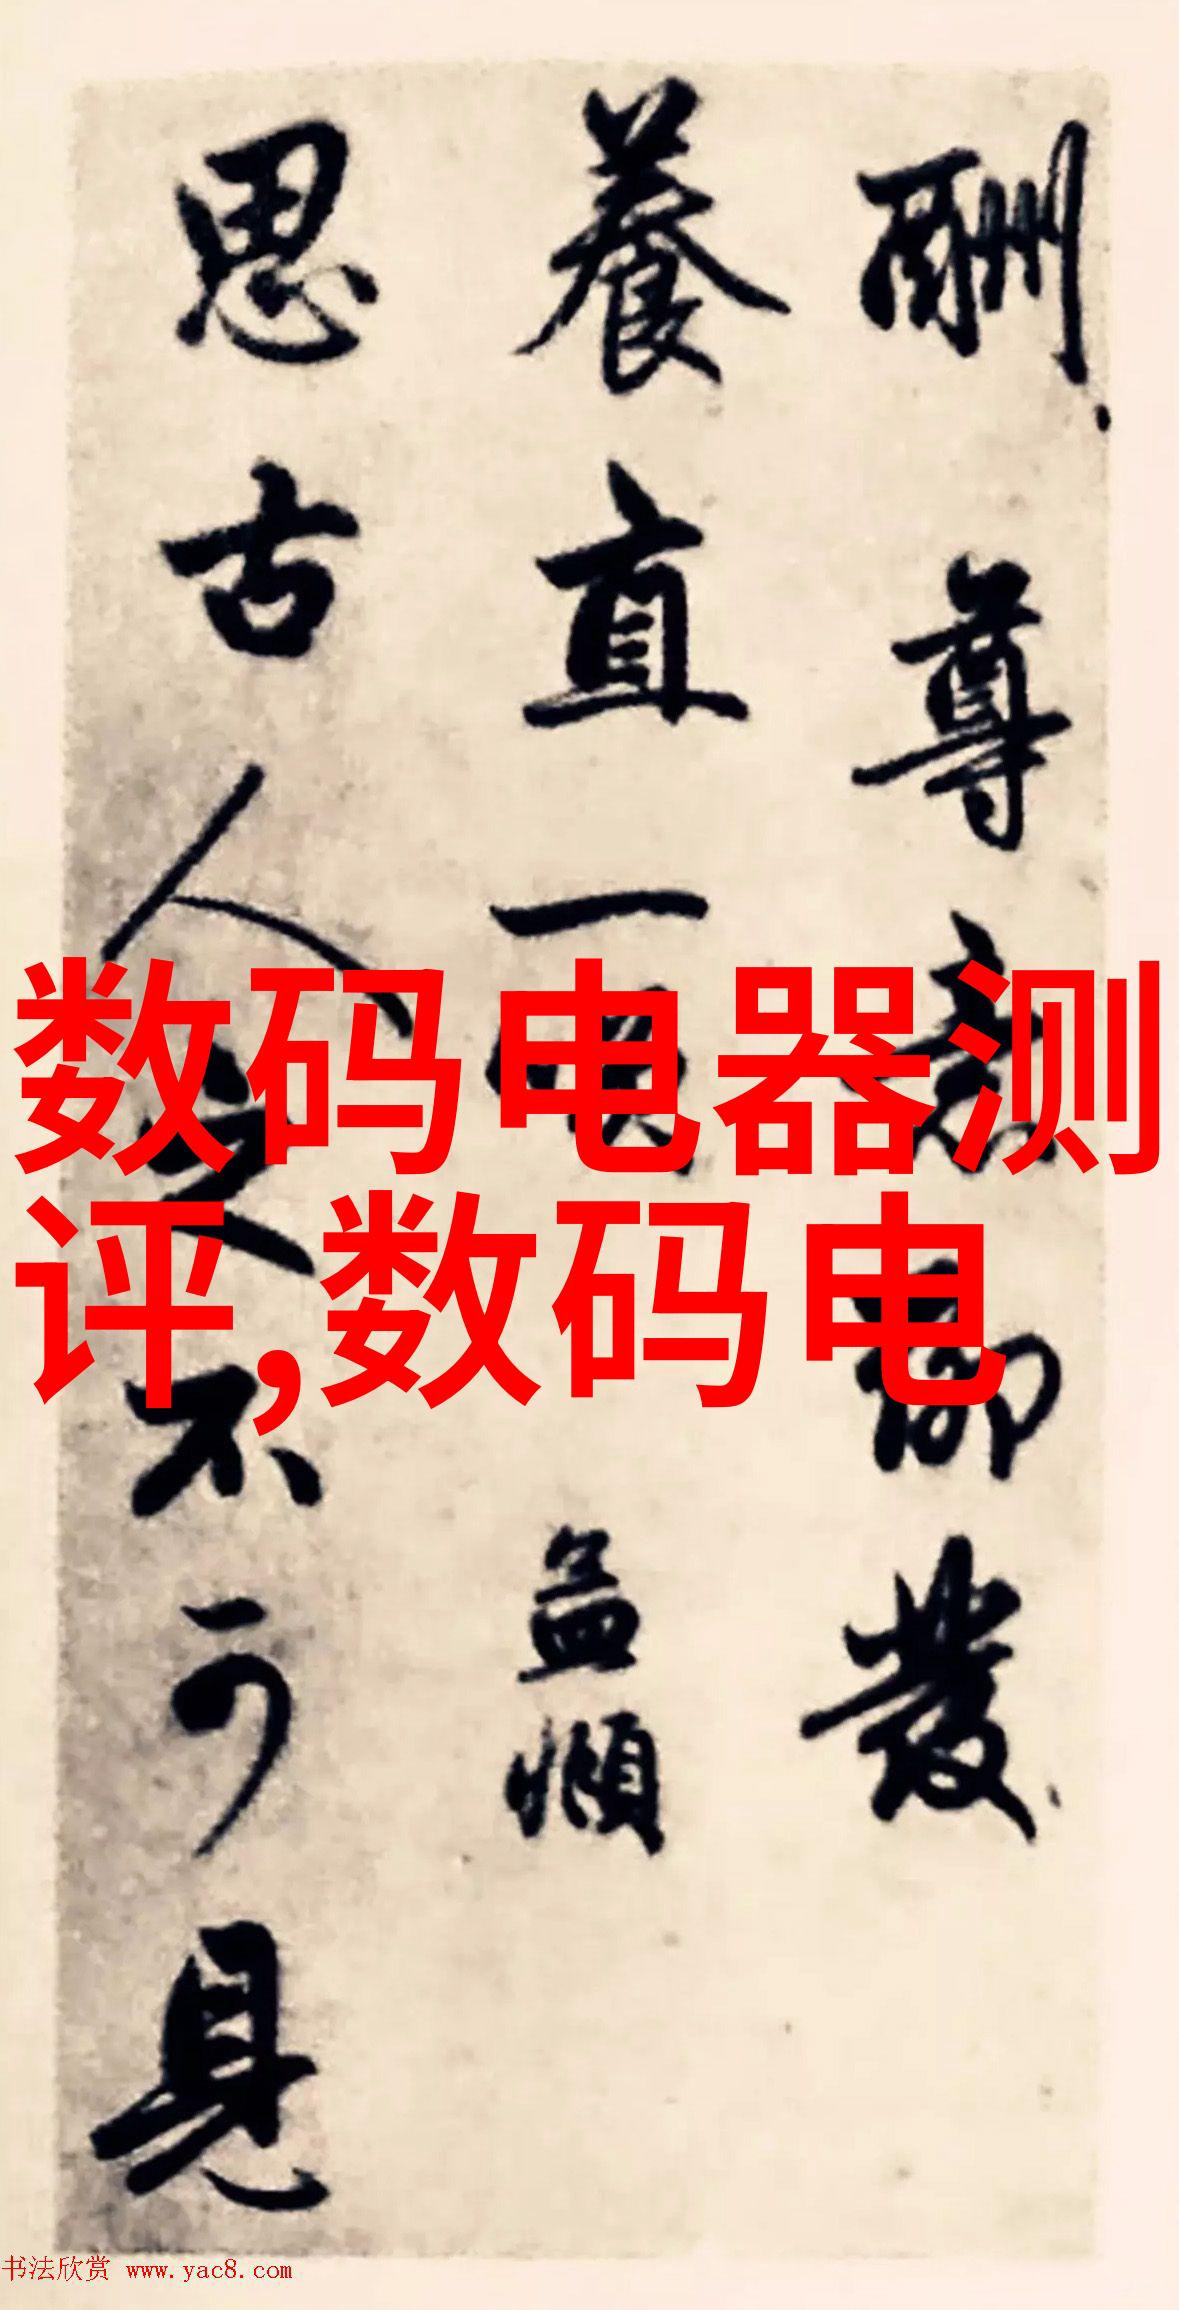 酬尊意聊發
養直一 孟頫
思古人之不可見
数码电器测
评,数码电
书法欣赏 www.yac8.com